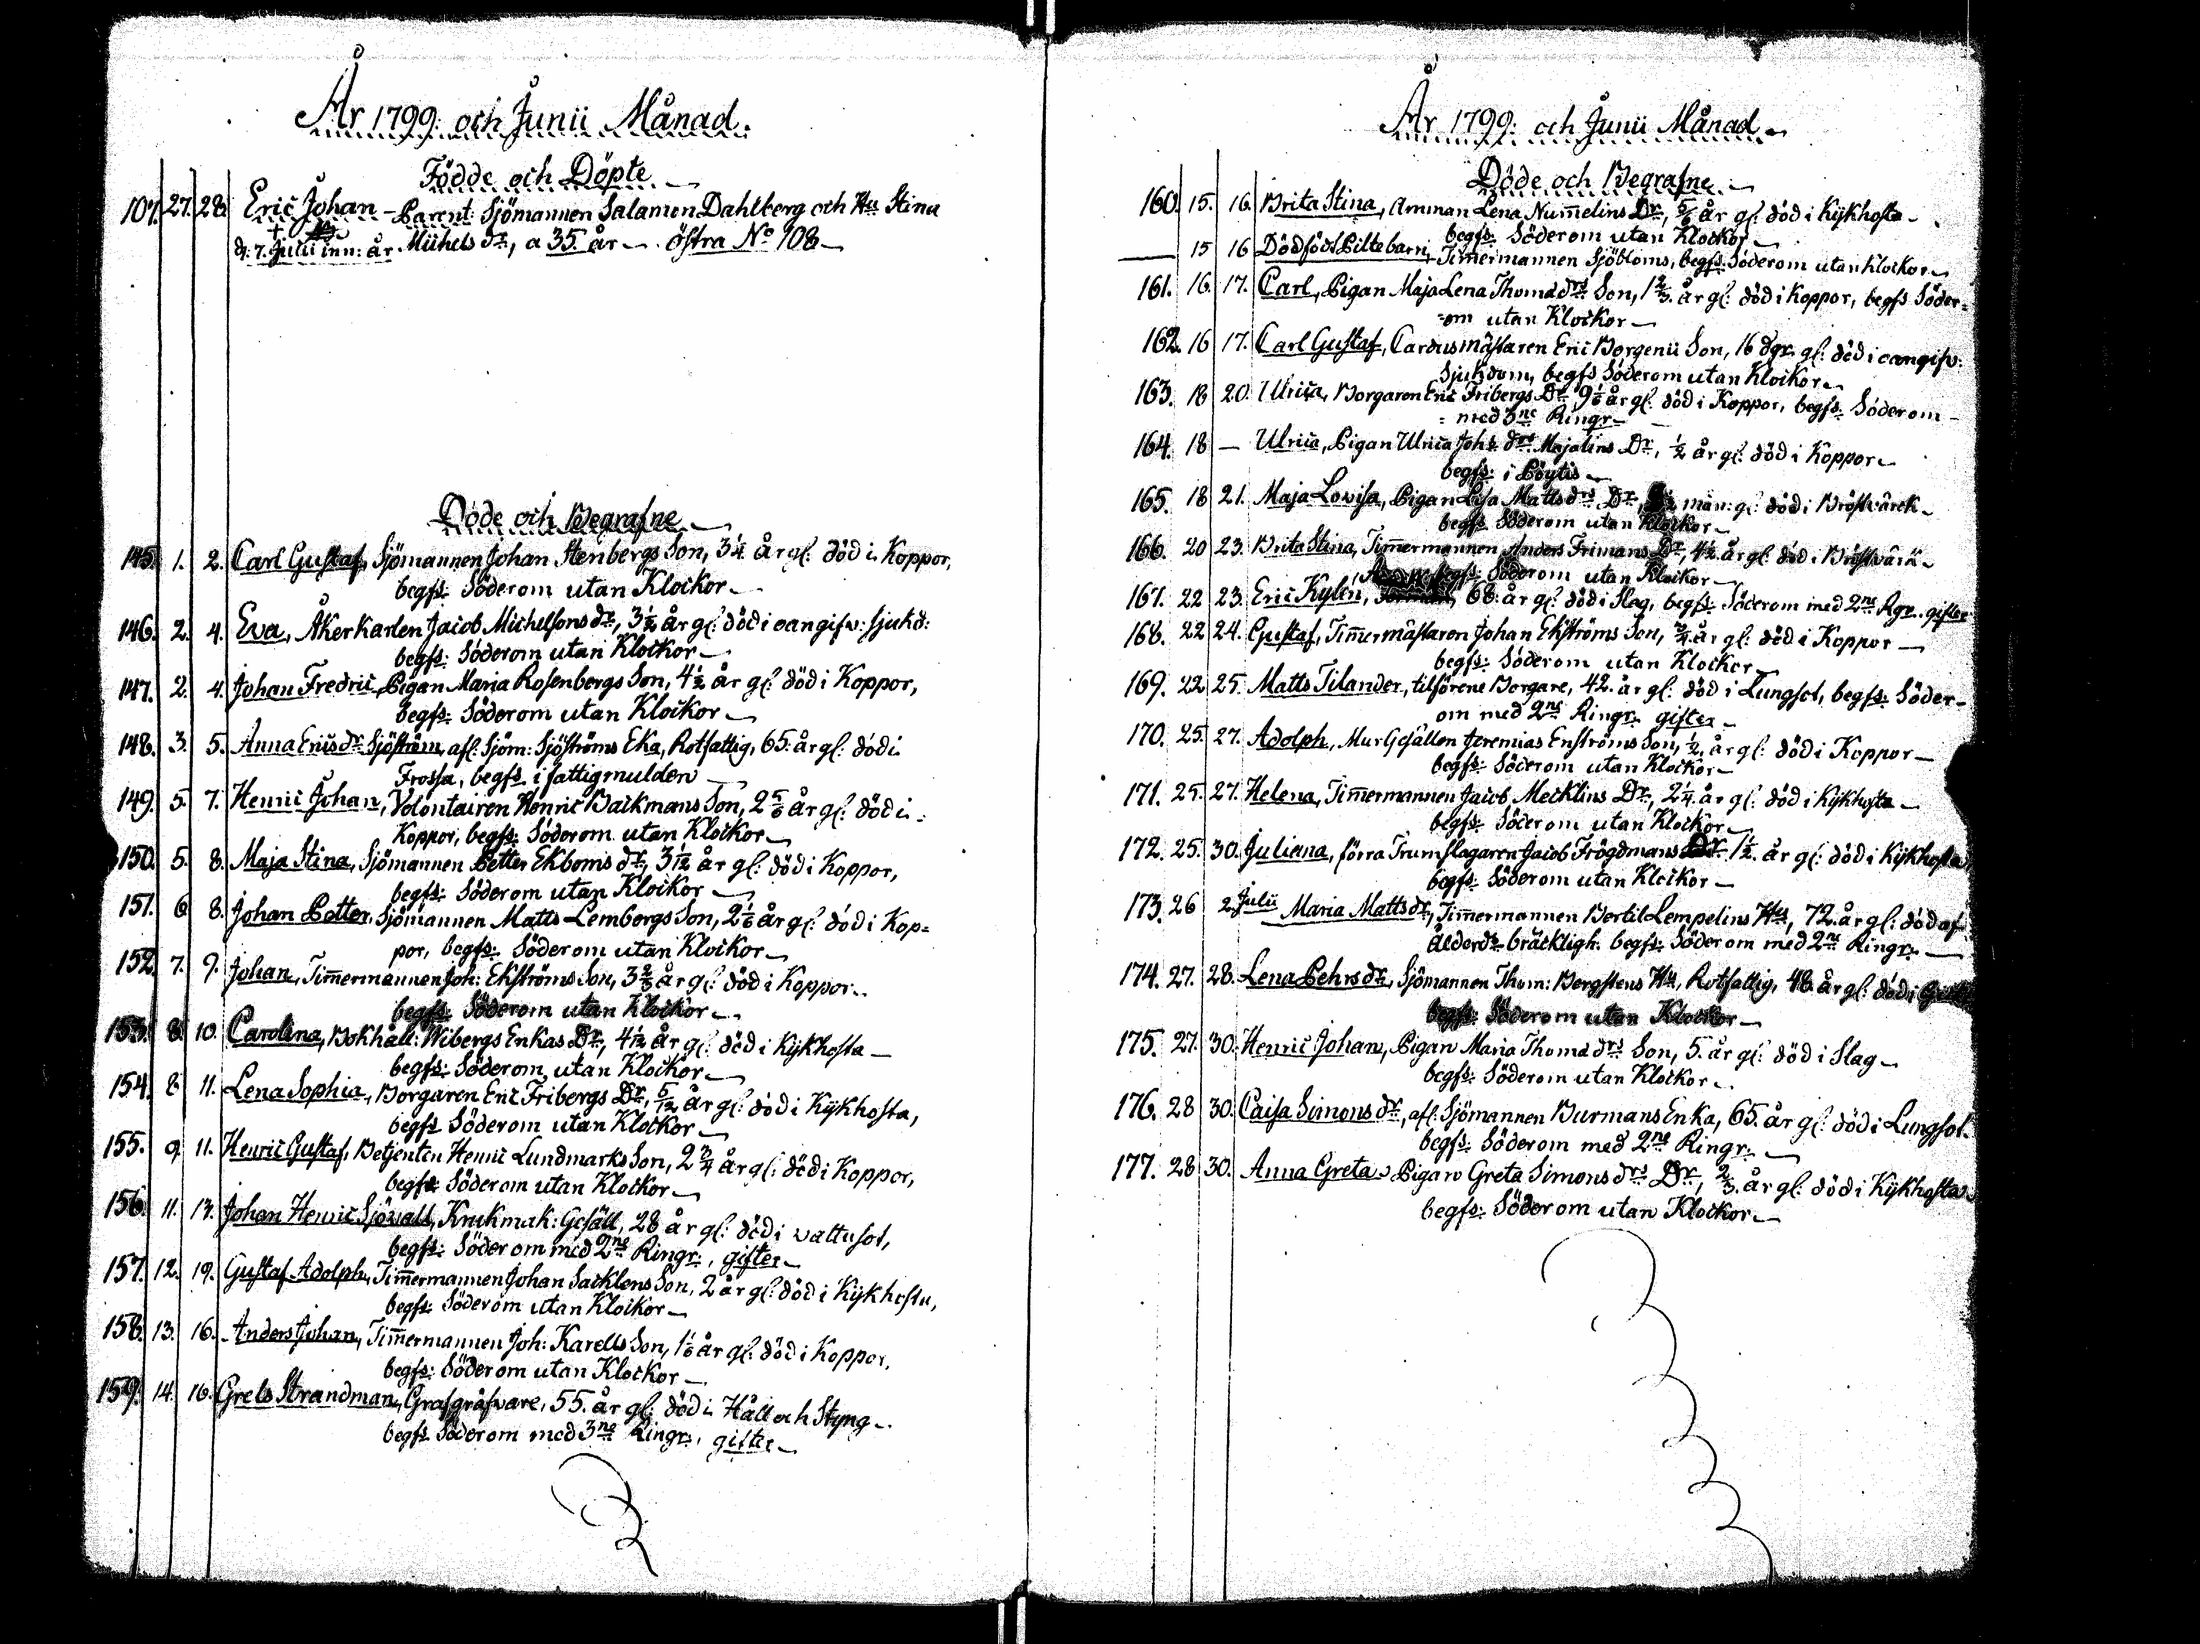 År 1799: och Junii Månad.
Födde och Döpte.
107. 27. 28. Eric Johan - Parent: Sjömannen Salamon Dahlberg och Hu Stina
+
d: 7. Julii inn: år Michels dr, a 35. år. östra No 108
Döde och Begrafne
145. 1. 2. Carl Gustaf, Sjömannen Johan Stenbergs Son, 3 1/4 år gl: död i Koppor,
begfs: Söderom utan Klockor
146. 2. 4. Eva, Åkerkarlen Jacob Michelsons dr, 3 1/2 år gl: död i oangifw: sjukd:
begfs: Söderom utan Klockor
147. 2. 4. Johan Fredric, Pigan Maria Rosenbergs Son, 4 1/2 år gl: död i Koppor,
begfs: Söderom utan Klockor
148. 3. 5. Anna Erics dr Sjöström, afl: Sjöm: Sjöströms Eka, Rotfattig, 65. år gl: död i
Frossa, begfs: i fattigmulden
149. 5. 7. Henric Johan, Volontairen Henric Backmans Son, 2 5/6 år gl: död i
Koppor, begfs: Söderom utan Klockor
150. 5. 8. Maja Stina, Sjömannen Petter Ekboms dr, 3 1/12 år gl: död i Koppor,
begfs: Söderom utan Klockor
151. 6 8. Johan Petter, Sjömannen Matts Lembergs Son, 2 1/6 år gl: död i Kop=
por, begfs: Söderom utan Klockor
152. 7. 9. Johan, Timmermannen Joh: Ekströms Son, 3 2/3 år gl: död i Koppor
begfs: Söderom utan Klockor
153. 8. 10. Carolina, Bokhåll: Wibergs Enkas Dr, 4 1/12 år gl: död i Kykhosta
begfs: Söderom, utan Klockor
154. 8 11. Lena Sophia, Borgaren Eric Fribergs Dr, 5/12 år gl: död i Kykhosta,
begfs Söderom utan Klockor
155. 9 11. Henric Gustaf, Betjenten Henric Lundmarks Son, 2 3/4 år gl: död i Koppor,
begfs: Söderom utan Klockor
156. 11. 13. Johan Henric Sjövall, Krukmak: Gesäll, 28 år gl: död i vattusot,
begfs: Söderom med 2ne Ringr:, gifter
157. 12. 19. Gustaf Adolph, Timmermannen Johan Sacklens Son, 2 år gl: död i Kykhosta,
begfs: Söderom utan Klockor
158. 13. 16. Anders Johan, Timmermannen Joh: Karells Son, 1 1/6 år gl: död i Koppor,
begfs: Söderom utan Klockor
159. 14. 16. Grels Strandman, Grafgräfvare, 55. år gl: död i Håll och Styng
begfs Söderom med 3ne Ringr:, gifter
År 1799: och Junii Månad
Döde och Begrafne
160. 15. 16. Brita Stina, Amman Lena Numelins Dr, 5/6 år gl: död i Kykhosta
begfs: Söderom utan Klockor
15 16 Dödfödt Piltebarn, Timmermannen Sjöbloms, begfs: Söderom utan Klockor
161. 16. 17. Carl, Pigan Maja Lena Thomæ drs Son, 1 2/3 år gl: död i Koppor, begfs Söder=
=om utan Klockor
162. 16 17. Carl Gustaf, Cardusmästaren Eric Borgenii Son, 16 dgr gl: död i oangifw:
Sjukdom, begfs Söderom utan Klockor
163. 18 20. Ulrica, Borgaren Eric Fribergs Dr 9 1/6 år gl: död i Koppor, begfs: Söderom
= med 3ne Ringr
164. 18 — Ulrica, Pigan Ulrica Johs drs Majalins Dr, 1/2 år gl: död i Koppor
begfs: i Pöytis
165. 18 21. Maja Lovisa, Pigan Lisa Matts drs Dr, mån: gl: död i Bröstvärck
begfs: Söderom utan Klockor
166. 20 23. Brita Stina, Timmermannen Anders Frimans Dr, 4 1/2 år gl: död i Bröstvärk
begfs: Söderom utan Klockor
167. 22 23. Eric Kylén, 68. år gl: död i Slag, begfs: Söderom med 2ne Rgr. gifter
168. 22 24. Gustaf, Timmermästaren Johan Ekströms Son, 3/4 år gl: död i Koppor
begfs: Söderom utan Klockor
169. 22 25. Matts Tilander, tilförene Borgare, 42. år gl: död i Lungsot, begfs: Söder-
om med 2ne Ringr gifter
170. 25. 27. Adolph, Mur Gesällen Jeremias Enströms Son, 1/2 år gl: död i Koppor
begfs: Söderom utan Klockor
171. 25. 27. Helena, Timmermannen Jacob Mecklins Dr, 2 1/4 år gl: död i Kykhosta
begfs: Söderom utan Klockor
172. 25. 30. Juliana, förra Trumslagaren Jacob Frögdmans Dr 1 1/2 år gl: död i Kykhosta,
begfs: Söderom utan Klockor
173. 26 2. Julii Maria Matts dr, Timmermannen Bertil Lempelins Hu, 72. år gl: död af
ålderds bräckligh: begfs: Söderom med 2ne Ringr
174. 27. 28. Lena Pehrs dr, Sjömannen Thom: Bergstens Hu, Rotfattig, 48 år gl: död i
begfs: Söderom utan Klockor
175. 27. 30. Henric Johan, Pigan Maria Thomæ drs Son, 5. år gl: död i Slag
begfs: Söderom utan Klockor
176. 28 30. Caisa Simons dr, afl: Sjömannen Burmans Enka, 65. år gl: död i Lungsot.
begfs: Söderom med 2ne Ringr
177. 28 30. Anna Greta, Pigan Greta Simons drs Dr, 2/3 år gl: död i Kykhosta
begfs: Söderom utan Klockor